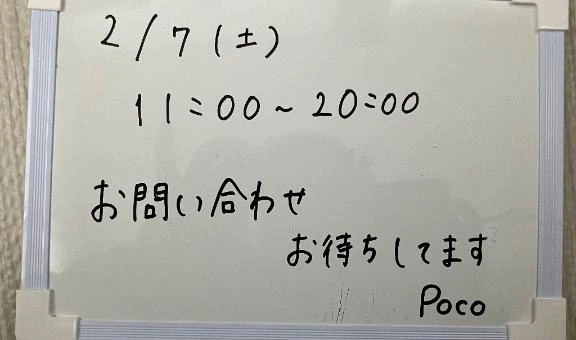 2/7(土)
11:00~20:00
お問い合わせ
お待ちしてます
Poco